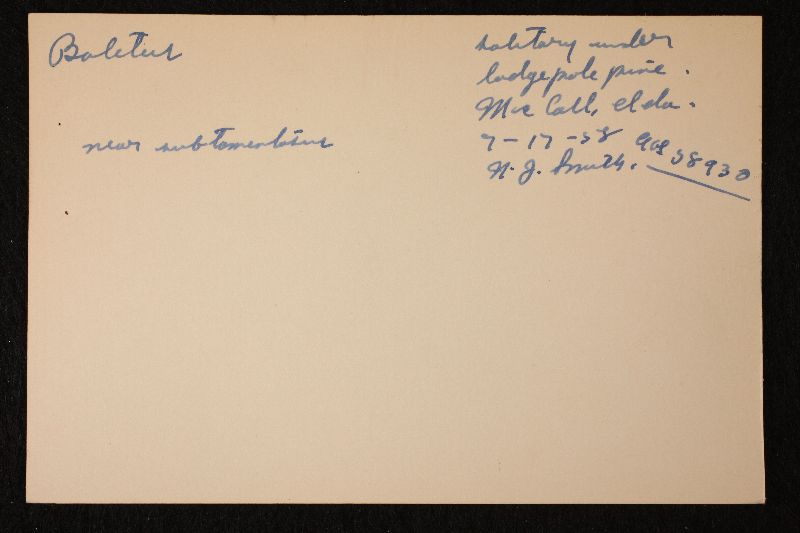 Boletus
near subtomentosus
solitary under
lodgepole pine.
McCall, Ida.
7-17-58
N. J. Smith. 58930